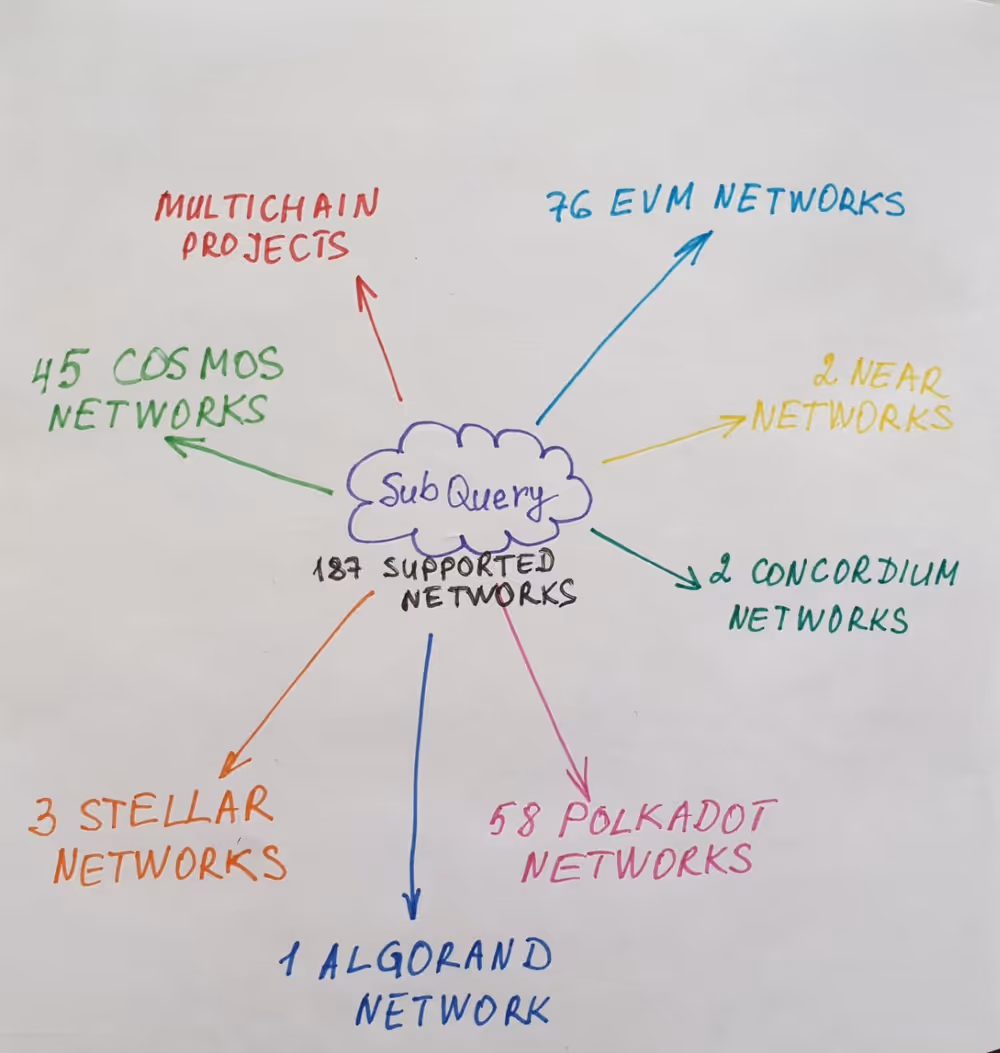 MULTICHAIN
PROJECTS
76 EVM NETWORKS
45 COSMOS
NETWORKS
2 NEAR
NETWORKS
SubQuery
187 SUPPORTED
NETWORKS
2 CONCORDIUM
NETWORKS
3 STELLAR
NETWORKS
58 POLKADOT
NETWORKS
1 ALGORAND
NETWORK